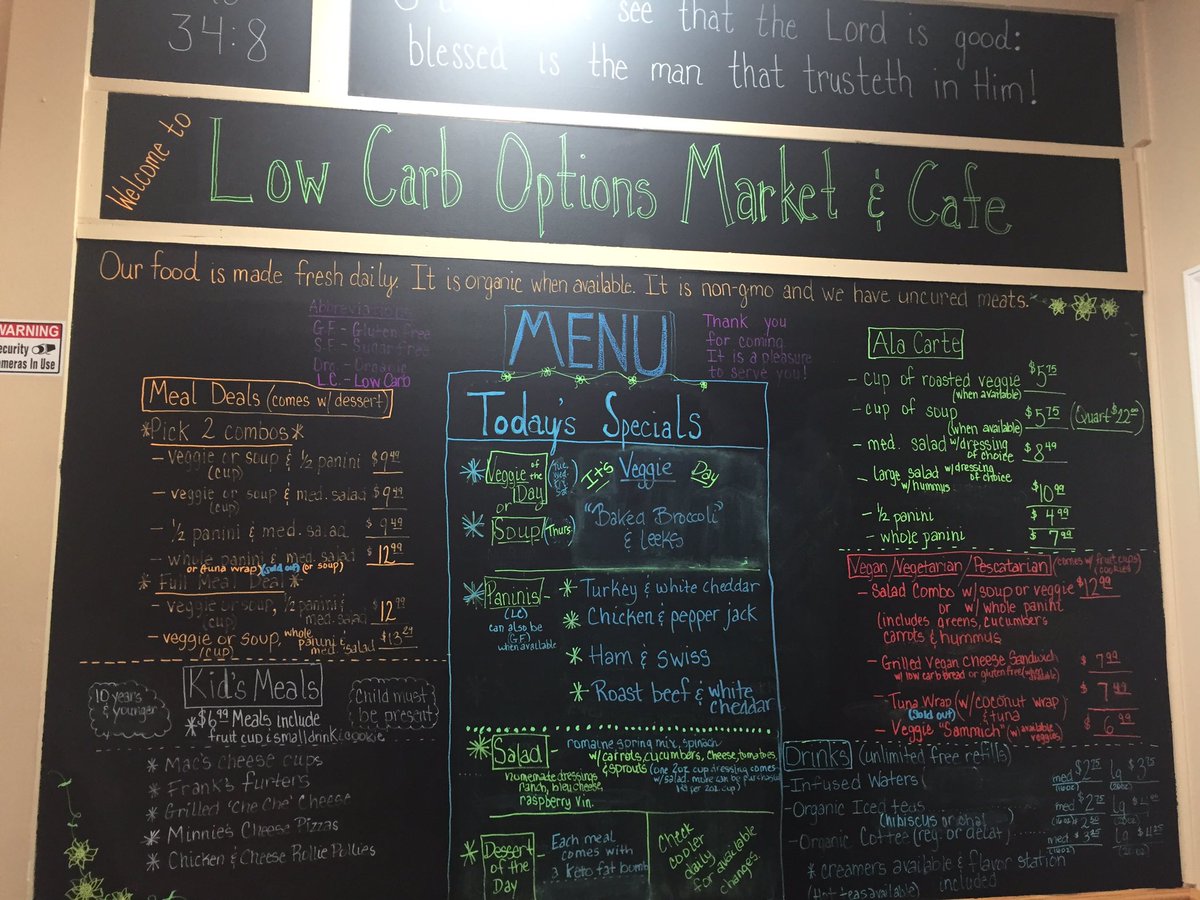 34:8
see that the Lord is good:
blessed is the man that trusteth in Him!
Welcome to
Low Carb Options Market & Cafe
Our food is made fresh daily. It is organic when available. It is non-gmo and we have uncured meats.
WARNING
Security
Cameras In Use
Abbreviations
G.F. - Gluten Free
S.F. - Sugar free
Org. - Organic
L.C. - Low Carb
MENU
Thank you
for coming.
It is a pleasure
to serve you!
Meal Deals (comes w/ dessert)
*Pick 2 combos*
- veggie or soup & 1/2 panini $9.49
(cup)
- veggie or soup & med. salad $9.49
(cup)
- 1/2 panini & med. salad $9.49
- whole panini & med. salad $12.99
or (tuna wrap) (sold out) (or soup)
* Full Meal Deal *
- veggie or soup, 1/2 panini & $12.99
(cup) med. salad
- veggie or soup, whole panini & $13.29
(cup) med. salad
Kid's Meals
10 years & younger
Child must be present
*$6.99 Meals include
fruit cup & small drink & cookie
* Mac's cheese cups
* Frank's furters
* Grilled "Che Che" Cheese
* Minnie's Cheese Pizzas
* Chicken & Cheese Rollie Pollies
Today's Specials
* Veggie of the Day (Tue. Wed. Fri. Sat)
or
* Soup (Thurs)
It's Veggie Day
"Baked Broccoli"
& leeks
* Paninis -
(LC)
can also be
(G.F)
when available
* Turkey & white cheddar
* Chicken & pepper jack
* Ham & swiss
* Roast beef & white
cheddar
* Salad - romaine spring mix, spinach
w/ carrots, cucumbers, cheese, tomatoes
& sprouts (one 2oz cup dressing comes
w/ salad. more can be purchased
per 2oz. cup)
homemade dressings
ranch, bleu cheese,
raspberry vin.
* Dessert
of the
Day
- Each meal
comes with
a keto fat bomb
Check
cooler
daily
for available
changes.
Ala Carte
- cup of roasted veggie $5.75
(when available)
- cup of soup $5.75 (Quart $22.00)
(when available)
- med. salad w/ dressing of choice $8.49
- large salad w/ dressing of choice
w/ hummus $10.99
- 1/2 panini $4.99
- whole panini $7.99
Vegan/Vegetarian/Pescatarian (comes w/ fruit cups)
(cookies)
- Salad Combo w/ soup or veggie $12.99
or w/ whole panini
(includes greens, cucumbers
carrots & hummus
- Grilled Vegan Cheese Sandwich $7.99
w/ low carb bread or gluten free (when available)
- Tuna Wrap (w/ coconut wrap $7.49
(Sold out) & tuna
- Veggie "Sammich" (w/ available veggies) $6.99
Drinks (unlimited free refills)
- Infused Waters med $2.75 lg $3.75
(16oz) (20oz)
- Organic Iced teas med $2.75 lg
(hibiscus or chai)
- Organic Coffee (reg. or decaf) med lg $4.25
* creamers available & flavor station
(Hot teas available) included